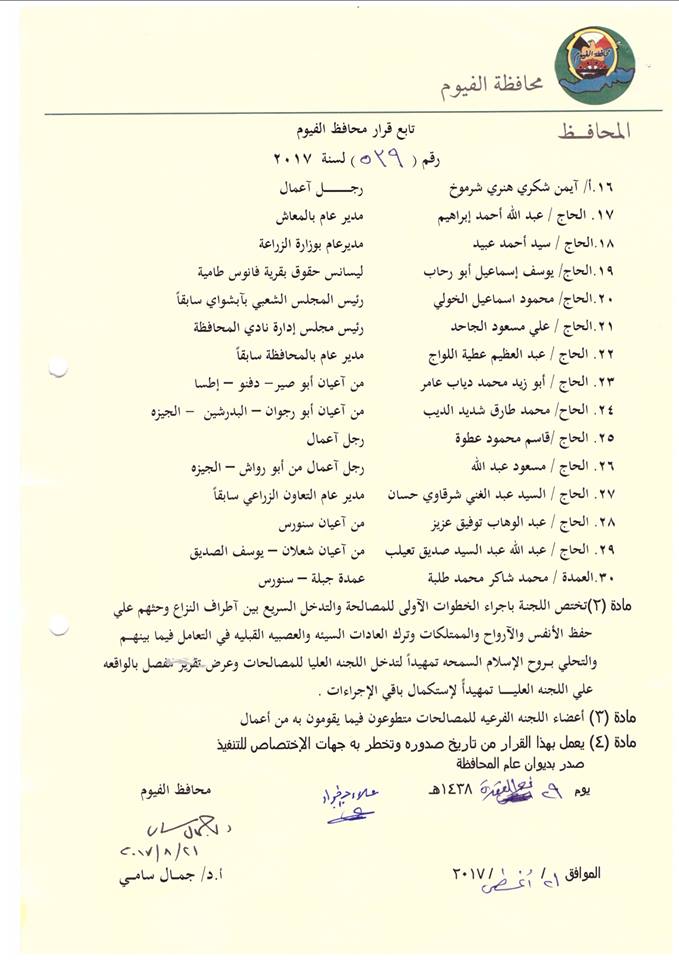 محافظة الفيوم
محافظة الفيوم
المحافـــظ
تابع قرار محافظ الفيوم
رقم ( ٥٣٩ ) لسنة ٢٠١٧
١٦.أ/ آيمن شكري هنري شرموخ رجـــــل آعمال
١٧. الحاج / عبد الله أحمد إبراهيم مدير عام بالمعاش
١٨.الحاج / سيد أحمد عبيد مديرعام بوزارة الزراعة
١٩. الحاج/ يوسف إسماعيل أبو رحاب ليسانس حقوق بقرية فانوس طامية
٢٠.الحاج/ محمود اسماعيل الخولي رئيس المجلس الشعبي بآبشواي سابقاً
٢١.الحاج/ علي مسعود الجاحد رئيس مجلس إدارة نادي المحافظة
٢٢. الحاج / عبد العظيم عطية اللواج مدير عام بالمحافظة سابقاً
٢٣. الحاج / أبو زيد محمد دياب عامر من آعيان أبو صير– دفنو – إطسا
٢٤. الحاح/ محمد طارق شديد الديب من آعيان أبو رجوان – البدرشين – الجيزه
٢٥. الحاج /قاسم محمود عطوة رجل آعمال
٢٦. الحاج / مسعود عبد الله رجل آعمال من أبو رواش – الجيزه
٢٧. الحاج / السيد عبد الغني شرقاوي حسان مدير عام التعاون الزراعي سابقاً
٢٨. الحاج / عبد الوهاب توفيق عزيز من آعيان سنورس
٢٩. الحاج / عبد الله عبد السيد صديق تعيلب من آعيان شعلان – يوسف الصديق
٣٠.العمدة / محمد شاكر محمد طلبة عمدة جبلة – سنورس
مادة (٢)تختص اللجنة باجراء الخطوات الآولى للمصالحة والتدخل السريع بين آطراف النزاع وحثهم علي
حفظ الأنفس والآرواح والممتلكات وترك العادات السيئه والعصبيه القبليه في التعامل فيما بينهـم
والتحلي بـروح الإسلام السمحه تمهيداً لتدخل اللجنه العليا للمصالحات وعرض تقرير مفصل بالواقعه
علي اللجنه العليـــا تمهيداً لإستكمال باقي الإجراءات .
مادة (٣) أعضاء اللجنه الفرعيه للمصالحات متطوعون فيما يقومون به من أعمال
مادة (٤) يعمل بهذا القرار من تاريخ صدوره وتخطر به جهات الإختصاص للتنفيذ
صدر بديوان عام المحافظة
يوم ٢٩ ذي القعدة ١٤٣٨هـ
محافظ الفيوم
٢٠١٧/٨/٢١
الموافق ٢١/ أغسطس /٢٠١٧
أ.د/ جمـال سامـي